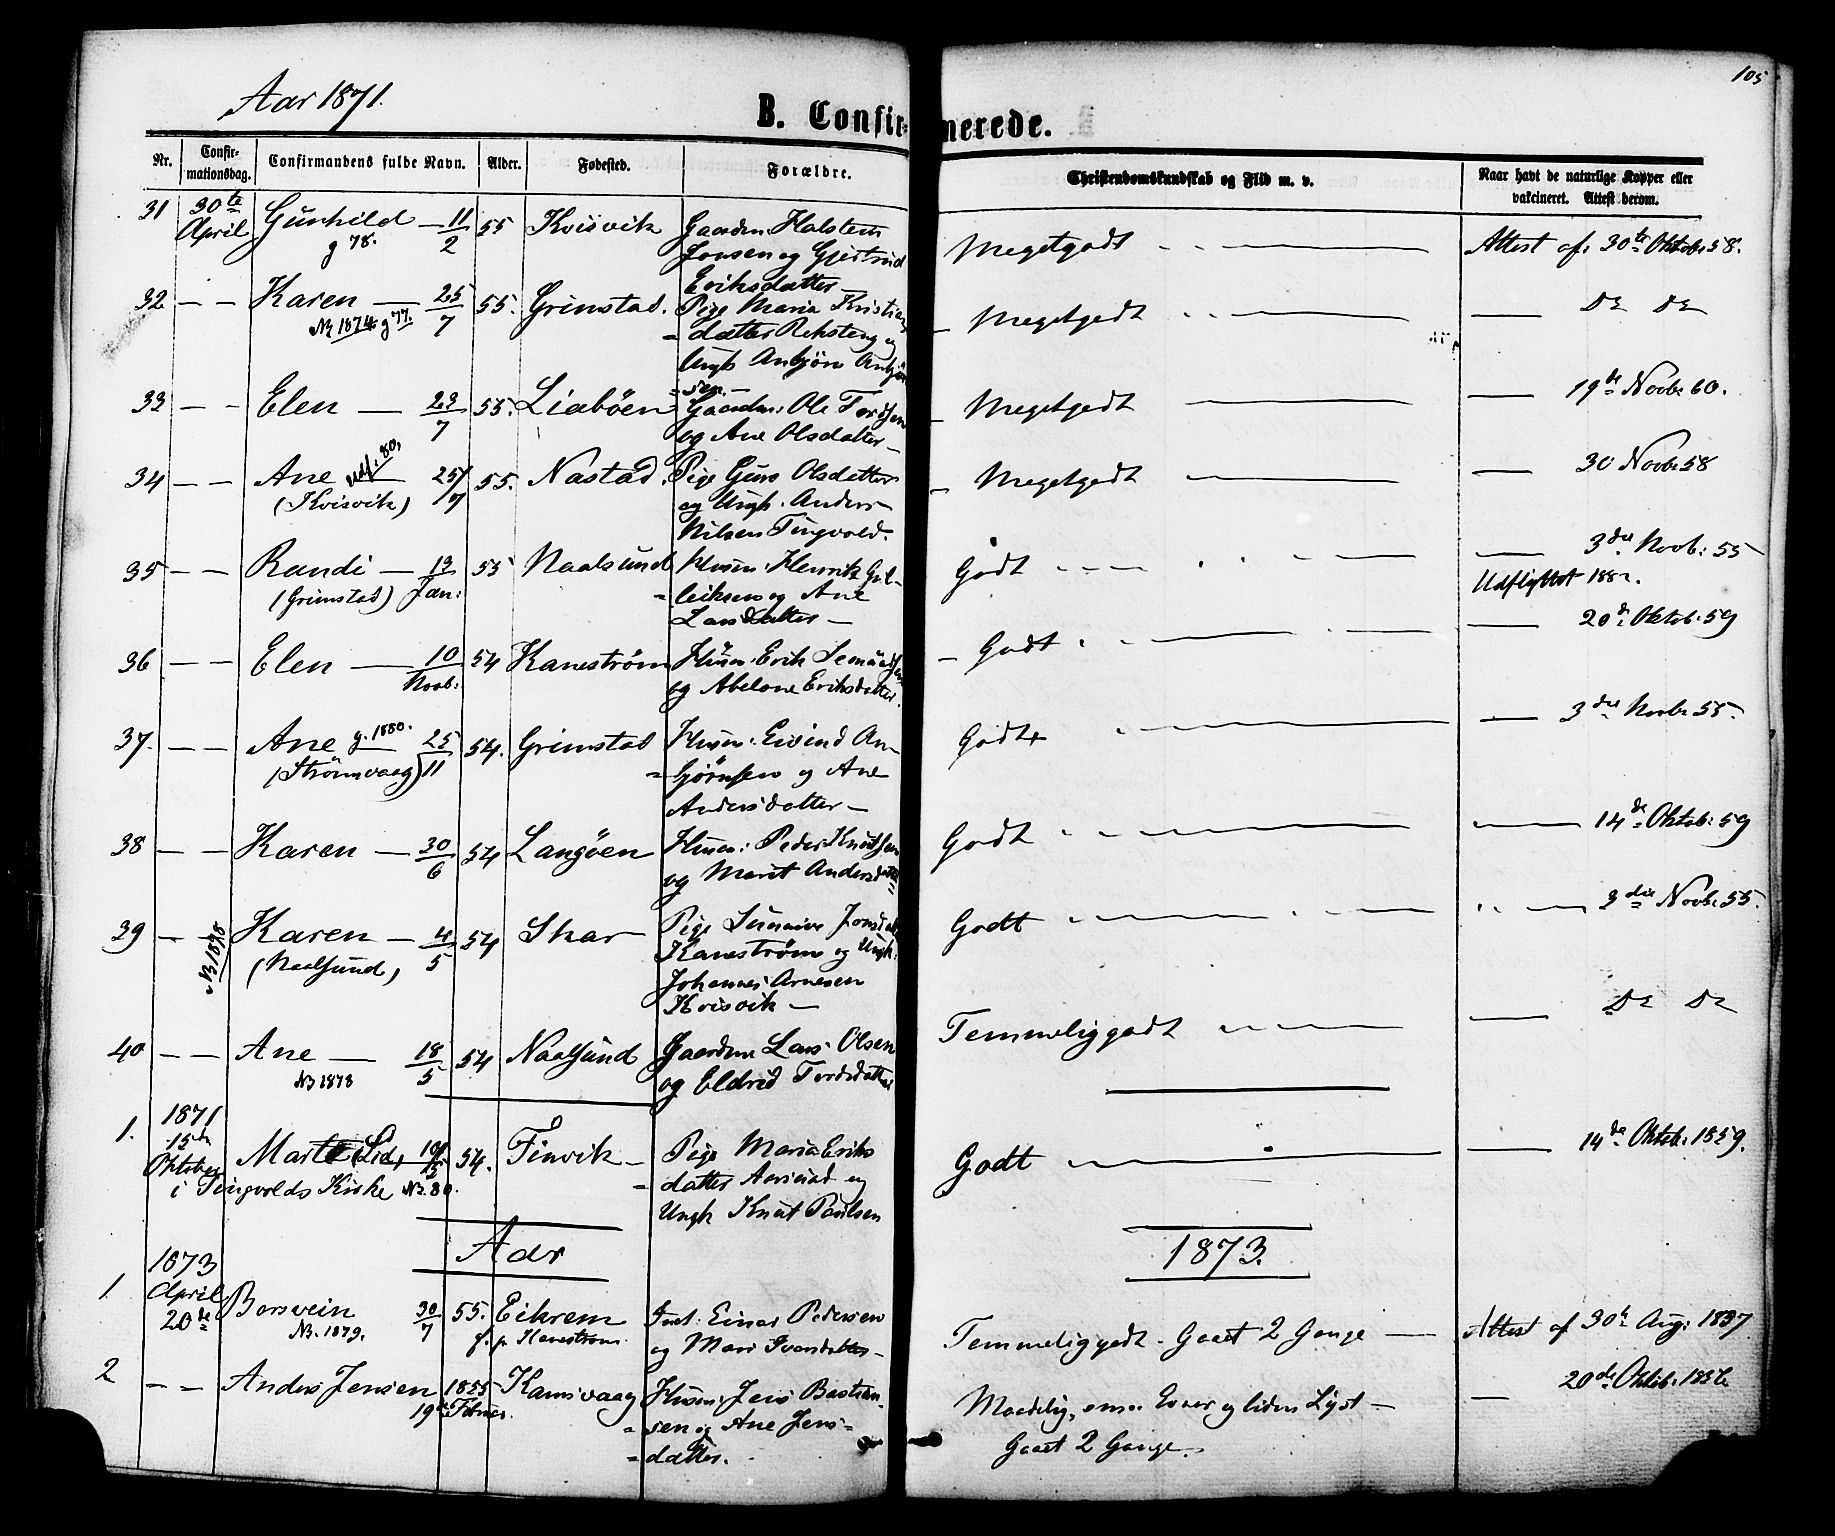 105
Aar 1871.
B. Confirmerede.
Nr. Confirmationsdag. Confirmandens fulde Navn. Alder. Fødested. Forældre. Christendomskundskab og Flid m. v. Naar havt de naturlige Kopper eller vakcineret. Attest derom.
31 30te April Gunhild 11/2 55 Kvisvik Gaardm. Halsten Meget godt Attest af 30te Oktob: 58.
g 78. Jonsen og Gjertrud
Eriksdatter
32 — — Karen 25/7 55. Grimstad. Pige Maria Kristians= Meget godt — Do Do
N3 1874. g 77. =datter Reksteng og
Ungk Anbjørn Anbjørn=
=sen
33 — — Elen 23/7 55. Liabøen Gaardm: Ole Tordsen Meget godt — 19de Novbr 60.
og Ane Olsdatter
34 — — Ane Udf: 80. 25/7 55. Nastad. Pige Guro Olsdatter Meget godt — 30 Novb: 58
(Kvisvik) og Ungk. Anders
Nilsen Tingvold.
35 — — Randi 13 Jan: 55 Naalsund Husm: Henrik Gul= Godt — 3die Novb: 55
(Grimstad) =leiksen og Ane Udflyttet 188
Larsdatter
36 — — Elen 10 Novb: 54 Kanestrøm Husm: Erik Godt — 20de Oktob: 59
og Abelone Eriksdatter.
37. — — Ane g. 1880. 25/11 54. Grimstad Husm: Eivind An= Godt — 3die Novbr 55.
(Strømsvaag) =bjørnsen og Ane
Andersdatter
38 — — Karen 30/6 54 Langøen Husm: Peder Knudsen Godt — 14de Oktob: 59
og Marit Andersdatter
39 — — Karen 4/5 54 Skar Pige Sunnive Jonsdat. Godt — 3die Novb: 55.
N3 1878 (Naalsund) Kanestrøm og Ungk:
Johannes Arnesen
Kvisvik
40 — — Ane 18/5 54 Naalsund Gaardm Lars Olsen Temmelig godt — Do Do
N3 1878 og Eldrid Tordsdatter
1. 1871 15de Oktober Marte (Lid) 54. Finvik Pige Maria Eriks Godt — 14de Oktob: 1859.
i Tingvolds Kirke N3. 80. =datter Aarsund og
Ungk Knut Paulsen
Aar 1873.
1 1873 April 20de Borsvein 30/7 55. Eikrem Inst: Einar Pedersen Temmelig godt. Gaaet 2 Gange — Attest af 30te Aug: 1857
N3. 1879. f. p. Kanestrøm og Mari Ivarsdatter
2 — — Anders Jensen 1855 19de Februar. Kamsvaag Husm: Jens Bastian= Maadelig, Evner og liden Lyst — 20de Oktob: 185
=sen og Ane Jens= Gaaet 2 Gange.
=datter.